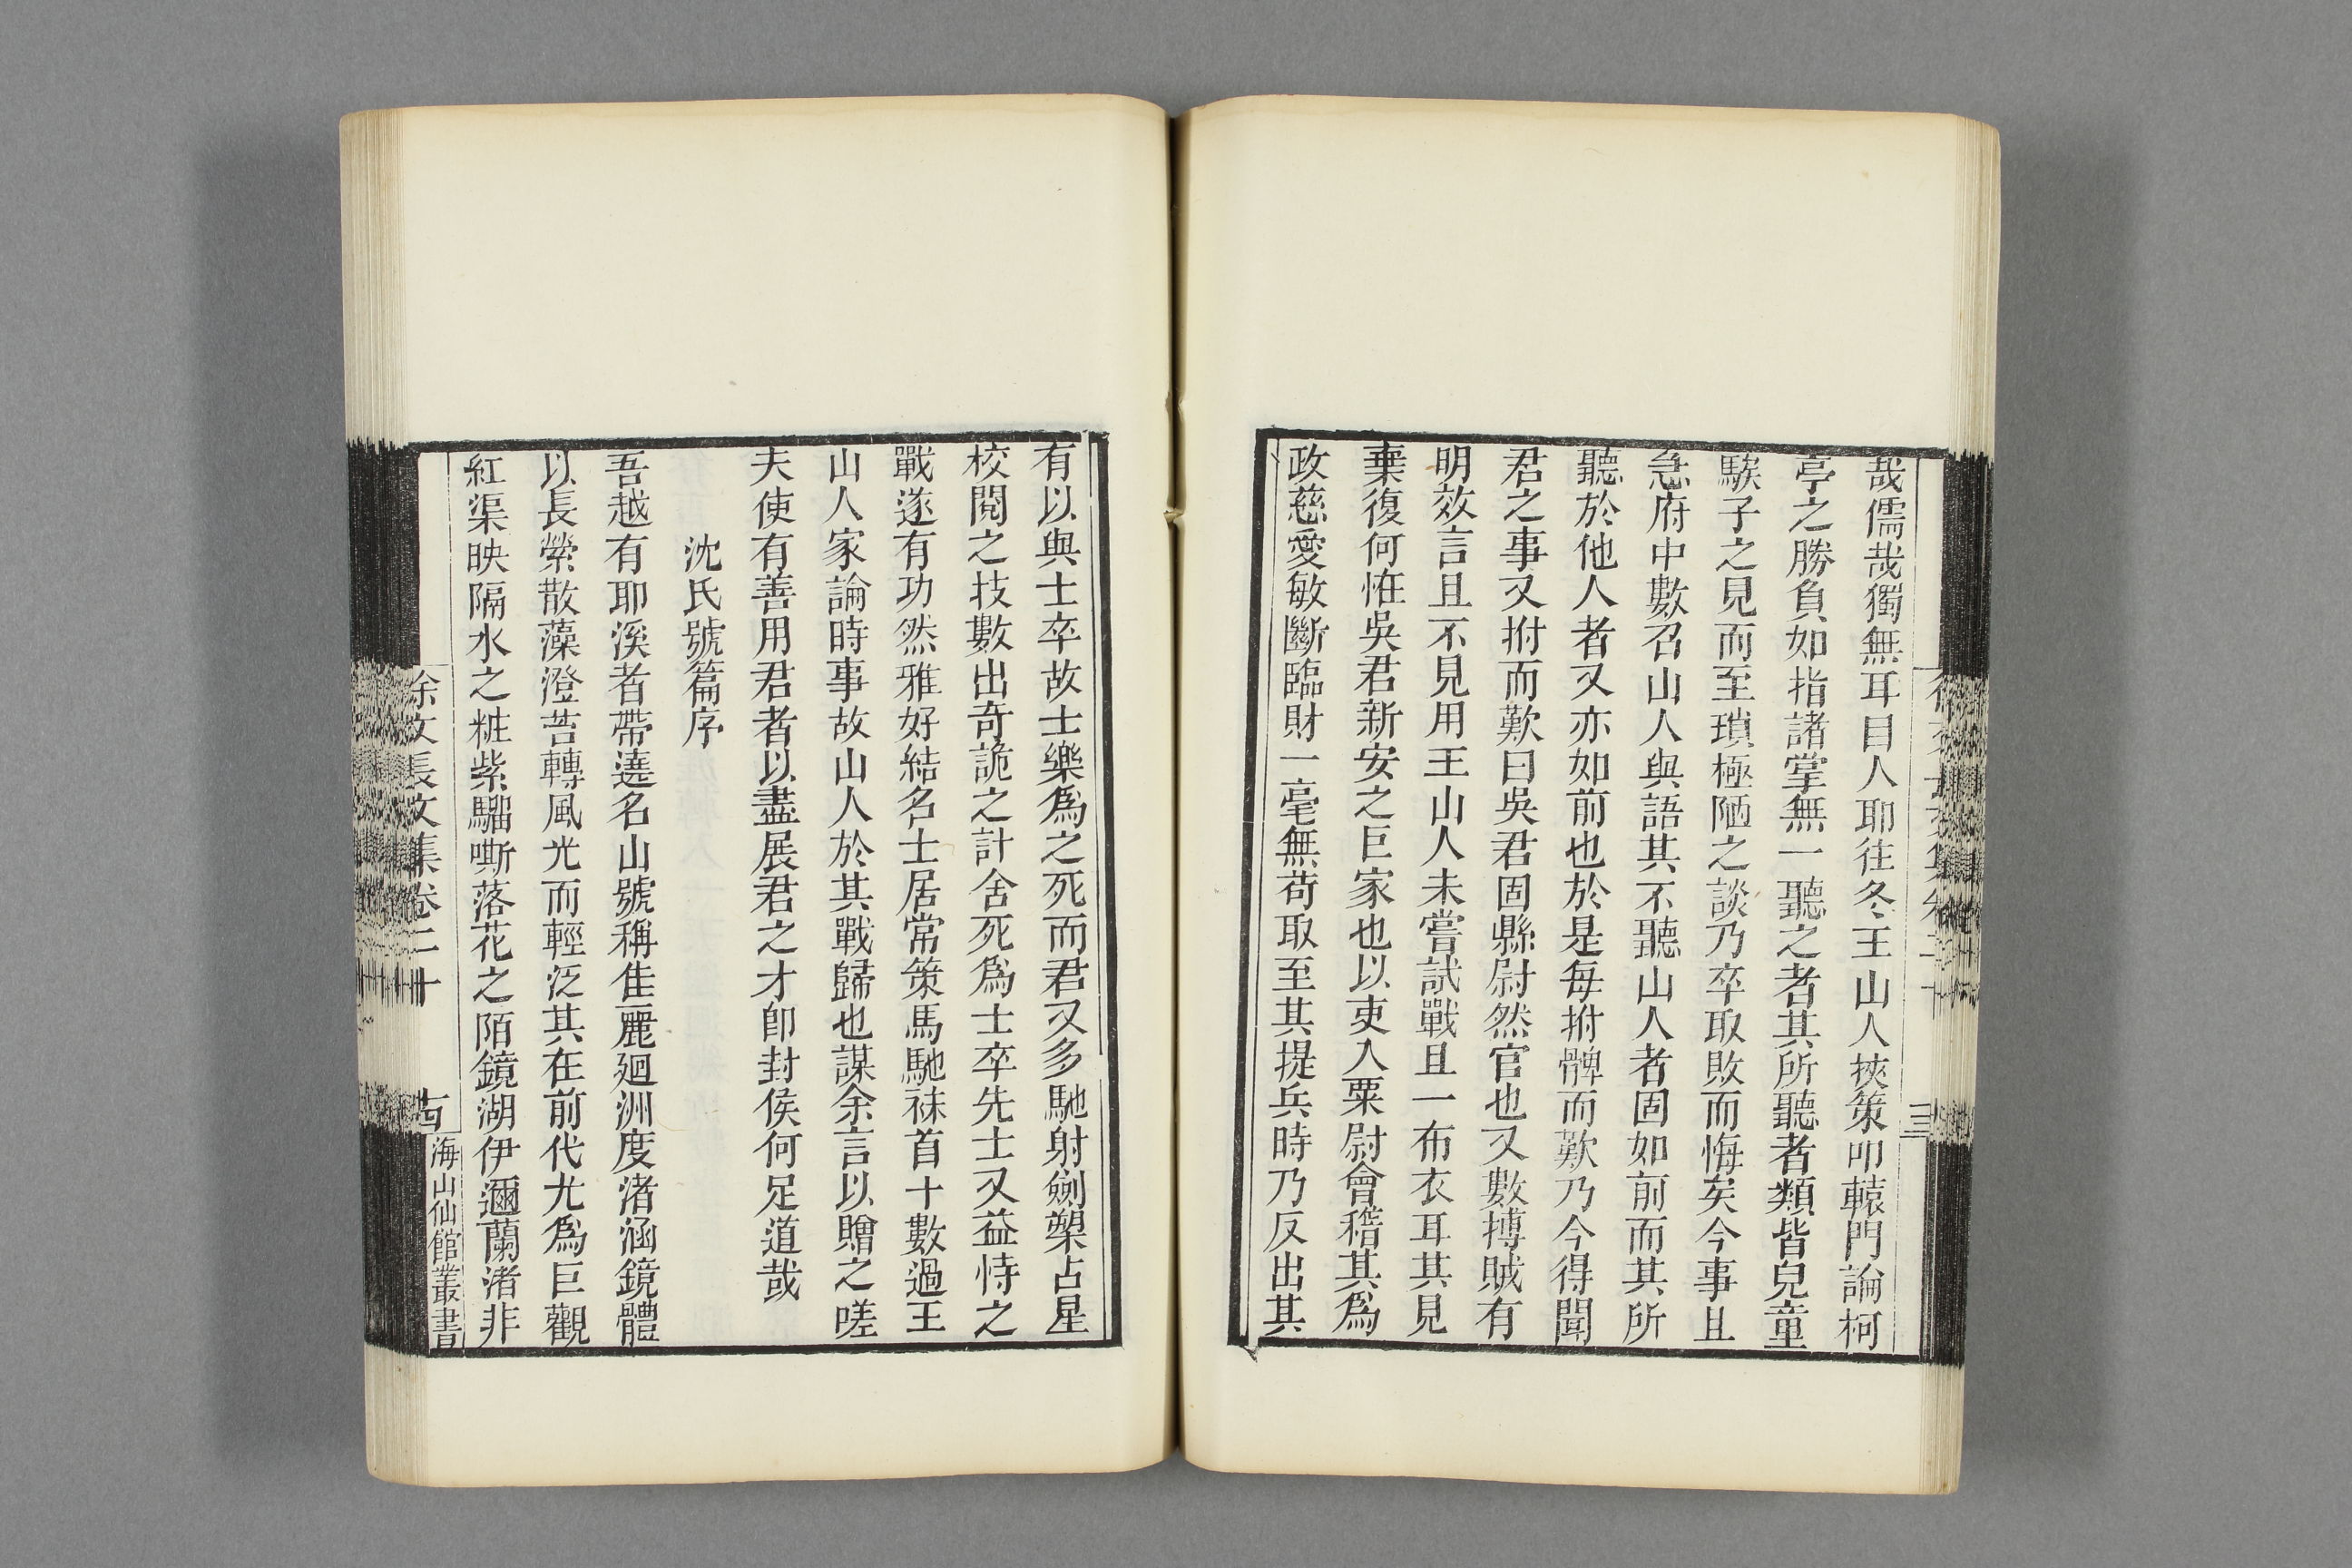 哉儒哉獨無耳目人耶往冬王山人挾策叩轅門論柯
亭之勝負如指諸掌無一聽之者其所聽者類皆兒童
騃子之見而至瑣極陋之談乃卒取敗而悔矣今事且
急府中數召山人與語其不聽山人者固如前而其所
聽於他人者又亦如前也於是每拊髀而歎乃今得聞
君之事又拊而歎曰吳君固縣尉然官也又數搏賊有
明效言且不見用王山人未嘗試戰且一布衣耳其見
棄復何恠吳君新安之巨家也以吏入粟尉會稽其爲
政慈愛敏斷臨財一毫無苟取至其提兵時乃反出其
有以與士卒故士樂爲之死而君又多馳射劍槊占星
校閱之技數出奇詭之計舍死爲士卒先士又益恃之
戰遂有功然雅好結名士居常策馬馳袜首十數過王
山人家論時事故山人於其戰歸也謀余言以贈之嗟
夫使有善用君者以盡展君之才卽封侯何足道哉
沈氏號篇序
吾越有耶溪者帶遶名山號稱佳麗廻洲度渚涵鏡體
以長縈散藻澄苔轉風光而輕泛其在前代尤爲巨觀
紅渠映隔水之粧紫騮嘶落花之陌鏡湖伊邇蘭渚非
徐文長文集卷二十
海山仙館叢書